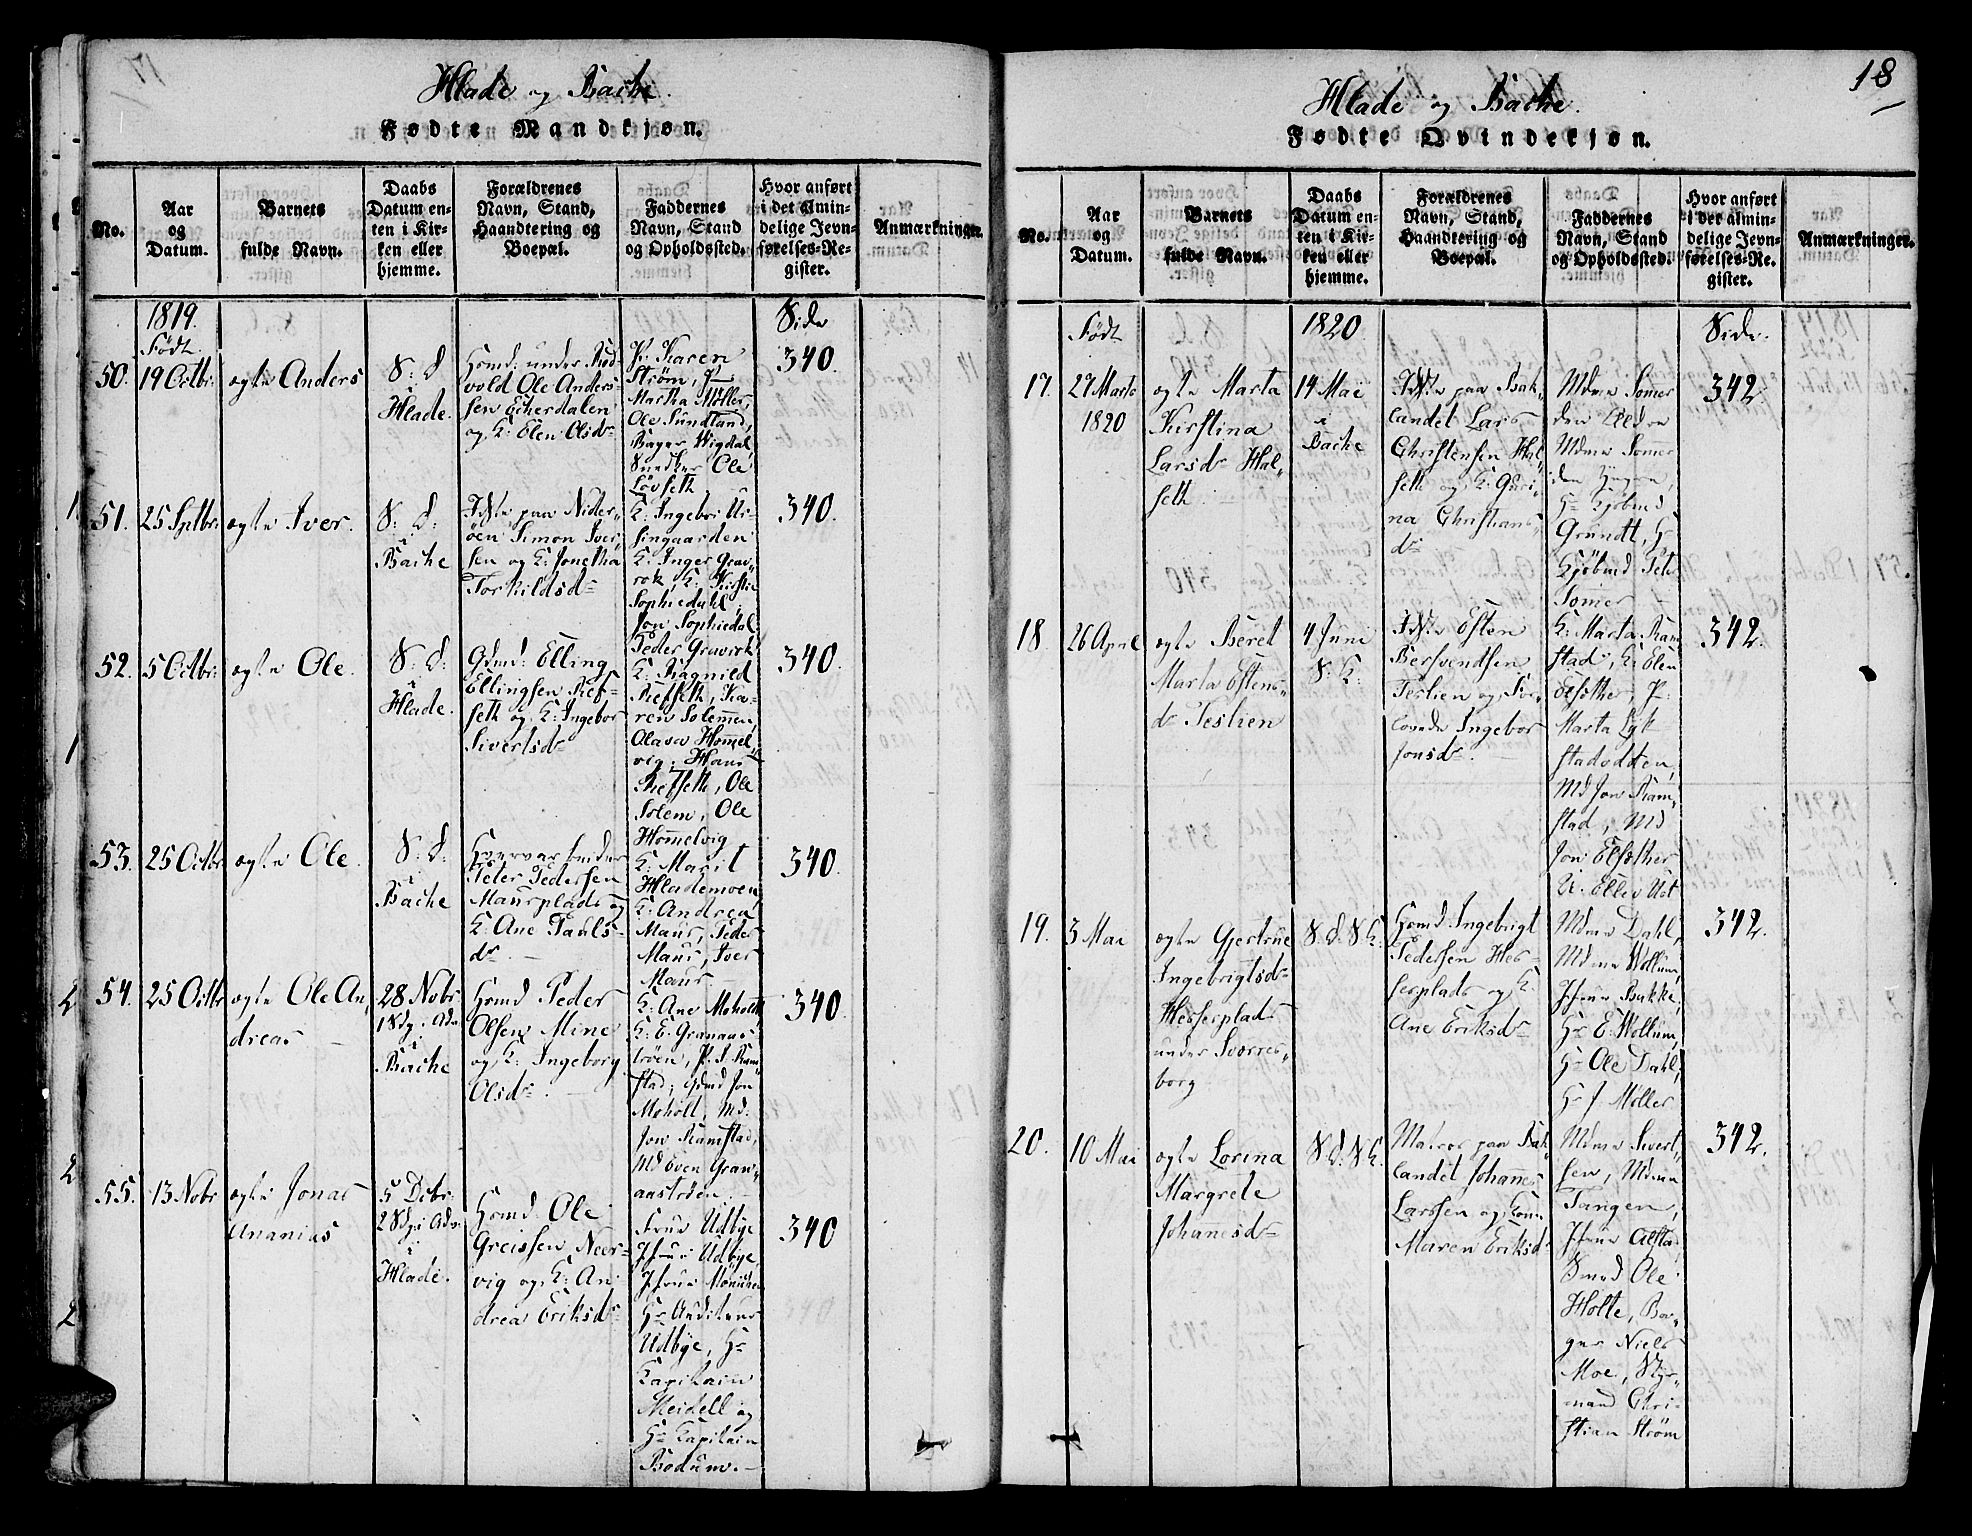 Hlade og Bache.
Fødte Mandkjøn.
No.
Aar
og
Datum.
Barnets
fulde Navn.
Daabs
Datum en-
ten i Kir-
ken eller
hjemme.
Forældrenes
Navn, Stand,
Haandtering og
Boepæl.
Faddernes
Navn, Stand
og Opholdssted.
Hvor anført
i det Almin-
delige Jevn-
førelses-Re-
gister.
Anmærkninger.
1819.
Født.
Side
50.
19 Octbr:
ægte Anders
S: d
Hlade.
Huusmd: under Rod-
vold Ole Anders-
sen Eckerdalen
og K: Elen Olsdr
P: Karen
Strøm, P:
Martha Møller,
Ole Sundland,
Bager Wigdal,
Snedker Ole
Løvseth
340
51.
25 Sptbr:
ægte Iver.
S: d:
i
Bache
Inste paa Nider-
öen Simon Iver-
sen og K: Jonetha
Torkildsdr
K: Ingebor
singaarden
K: Inger Grav-
rok, K: Kirstie
Sophiedahl
Jon Sophiedal
Peder Gravirk
340.
52.
5 Octbr:
ægte Ole.
S: d:
i
Hlade.
Gdmd: Elling
Ellingsen Ref-
seth og K: Ingebor
Sivertsdr
K: Ragnild
Refseth, Ka-
ren Solemen,
Olava Hommel-
vig, Hans
Refseth, Ole
Solem, Ole
Hommelvig
340.
53.
25 Octbr
ægte Ole.
S: d:
i
Bache
Peter Pedersen
Maurplads og
K: Ane Pauls-
dr.
K: Marit
Hlademoen,
K: Andrea
Maur, Peder
Maur, Iver
Maur.
340.
54.
25 Octbr
ægte Ole An-
dreas
28 Nobr
1 Sdg. i Adv.
i
Bache
Huusmd Peder
Olsen Mine
og K: Ingeborg
Olsdr.
K: Ane Moholt,
K: E. Granaas
trøen, P. S. Ram-
stad, Gdmd Jon
Moholt, Md:
Jon Ramstad,
Md Even Gran-
aastrøen.
340.
55.
13 Nobr
ægte Jonas
Ananias
5 Debr
2 Sdg i Adv.
i
Hlade.
Huusmd Ole
Greissen Neer-
vig og K: An-
drea Eriksdr
Frue Udbye
Jfrue Udbye,
Jfrue
Hr Auditeur
Udbye, Hr
Kapitain
Meidell og
Hr Kapitain
Bodum.
340
18
Hlade og Bache.
Fødte Qvindekjøn.
No.
Aar
og
Datum.
Barnets
fulde Navn.
Daabs
Datum en-
ten i Kir-
ken eller
hjemme.
Forældrenes
Navn, Stand,
Haandtering og
Boepæl.
Faddernes
Navn, Stand
og Opholdssted.
Hvor anført
i der almin-
delige Jevn-
førelses-Re-
gister.
Anmærkninger.
Født
1820
Side.
17.
27 Marts
1820
ægte Marta
Kirstina
Larsdr Hal-
seth
14 Mai
i
Bache
Inste paa Bak-
landet Lars
Christensen Hal-
seth og K: Guri-
na Christians-
dr
Mdme Somer
den Ældre
Mdme Somer
den Yngre,
Hr Kjøbmd
Grundt, Hr
Kjøbmd Pet.
Somer
342.
18
26 April
ægte Beret
Marta Estens-
dr Teslien
4 Juni
S: K:
Inste Esten
Bersvendsen
Teslien og
Ingebor
Jonsdr.
K: Marta Ram-
stad, K: Elen
Elsether, P:
Marta Lyk-
stadodden,
Md Jon Ram-
stad, Md
Jon Elsether
U. Ellev Ust
342.
19.
3 Mai
ægte Gjertrue
Ingebrigtsdr
Hesserplads
under Sverres-
borg
S. d. S K.
Huusmd Ingebrigt
Pedersen Hes-
serplads og K
Ane Eriksdr
Mdme Dahl,
Mdme Wollum,
Jfrue Bakke,
Hr E. Wollum,
Hr Ole Dahl,
Hr J. Møller
342.
20.
10 Mai
ægte Lorina
Margrete
Johannesdr
S d. S K.
Matros paa Bak-
landet Johannes
Larssen og Kone
Maren Eriksd
Mdme Sivert-
sen, Mdme
Tangen,
Jfrue Alsta
Smed Ole
Holte, Bag-
ger Niels
Moe, Styr-
mand Chri-
stian Strøm
342.